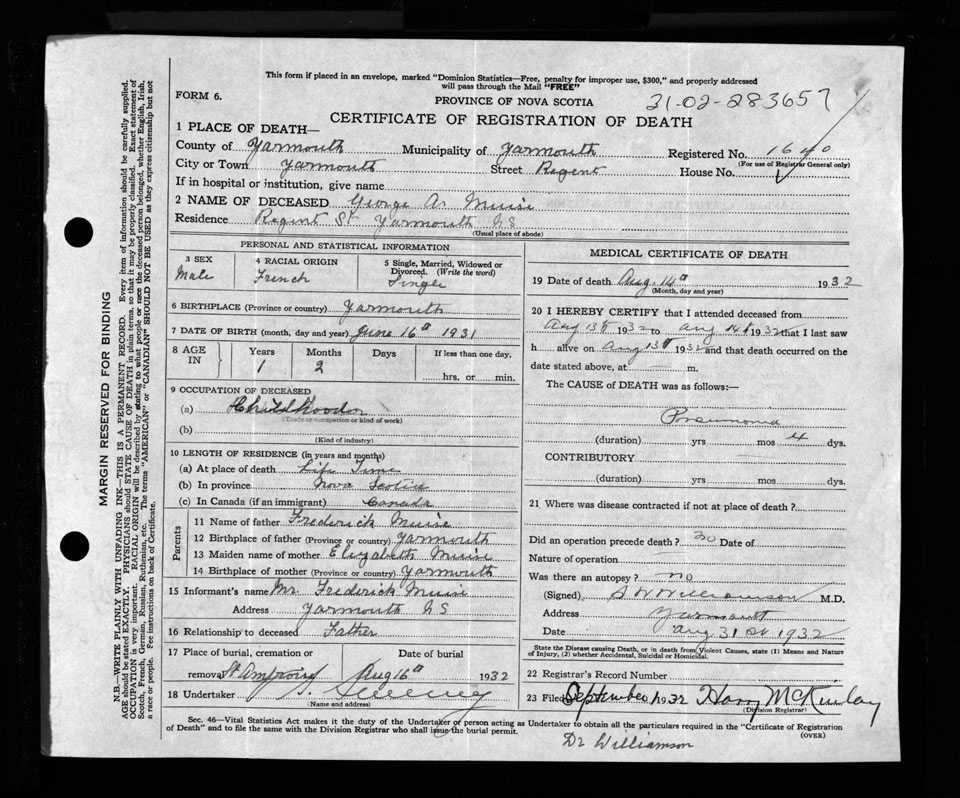 This form if placed in an envelope, marked "Dominion Statistics—Free, penalty for improper use, $300," and properly addressed
will pass through the Mail "FREE"
FORM 6.
PROVINCE OF NOVA SCOTIA
21-02-283657
CERTIFICATE OF REGISTRATION OF DEATH
1 PLACE OF DEATH—
County of Yarmouth Municipality of Yarmouth Registered No. 1640
(For use of Registrar General only)
City or Town Yarmouth Street Regent House No.
If in hospital or institution, give name
2 NAME OF DECEASED George A. Muise
Residence Regent St Yarmouth N S
(Usual place of abode)
PERSONAL AND STATISTICAL INFORMATION
3 SEX
Male
4 RACIAL ORIGIN
French
5 Single, Married, Widowed or
Divorced. (Write the word)
Single
6 BIRTHPLACE (Province or country) Yarmouth
7 DATE OF BIRTH (month, day and year) June 16th 1931
8 AGE IN
Years Months Days If less than one day,
1 2 hrs. or min.
9 OCCUPATION OF DECEASED
(a) Childhood
(Trade or occupation or kind of work)
(b)
(Kind of industry)
10 LENGTH OF RESIDENCE (in years and months)
(a) At place of death Life Time
(b) In province Nova Scotia
(c) In Canada (if an immigrant) Canada
Parents
11 Name of father Frederick Muise
12 Birthplace of father (Province or country) Yarmouth
13 Maiden name of mother Elizabeth Muise
14 Birthplace of mother (Province or country) Yarmouth
15 Informant's name Mr. Frederick Muise
Address Yarmouth N S
16 Relationship to deceased Father
17 Place of burial, cremation or
removal St Ambroise
Date of burial
Aug 16th 1932
18 Undertaker Sweeney
(Name and address)
MEDICAL CERTIFICATE OF DEATH
19 Date of death Aug. 14th 1932
(Month, day and year)
20 I HEREBY CERTIFY that I attended deceased from
Aug 13th 1932 to Aug 14th 1932 that I last saw
h alive on Aug 13th 1932 and that death occurred on the
date stated above, at — m.
The CAUSE of DEATH was as follows:—
Pneumonia
(duration) yrs mos 4 dys.
CONTRIBUTORY —
(duration) yrs mos dys.
21 Where was disease contracted if not at place of death?
Did an operation precede death? no Date of
Nature of operation
Was there an autopsy? no
(Signed) Williamson M.D.
Address Yarmouth
Date Aug 31st 1932
State the Disease causing Death, or in death from Violent Causes, state (1) Means and Nature
of Injury, (2) whether Accidental, Suicidal or Homicidal.
22 Registrar's Record Number
23 Filed September 1, 1932 Harry McKinlay
(Division Registrar)
Sec. 46—Vital Statistics Act makes it the duty of the Undertaker or person acting as Undertaker to obtain all the particulars required in the "Certificate of Registration
of Death" and to file the same with the Division Registrar who shall issue the burial permit.
(OVER)
Dr Williamson
MARGIN RESERVED FOR BINDING
N.B.—WRITE PLAINLY WITH UNFADING INK—THIS IS A PERMANENT RECORD. Every item of information should be carefully supplied.
AGE should be stated EXACTLY. PHYSICIANS should STATE CAUSE OF DEATH in plain terms, so that it may be properly classified. Exact statement of
OCCUPATION is very important. RACIAL ORIGIN will be described by stating to what people or race the deceased person belonged, whether English, Irish,
Scotch, French, German, Russian, Ruthenian, etc. The terms "AMERICAN" or "CANADIAN" SHOULD NOT BE USED as they express citizenship but not
a race or people. Fee instructions on back of Certificate.